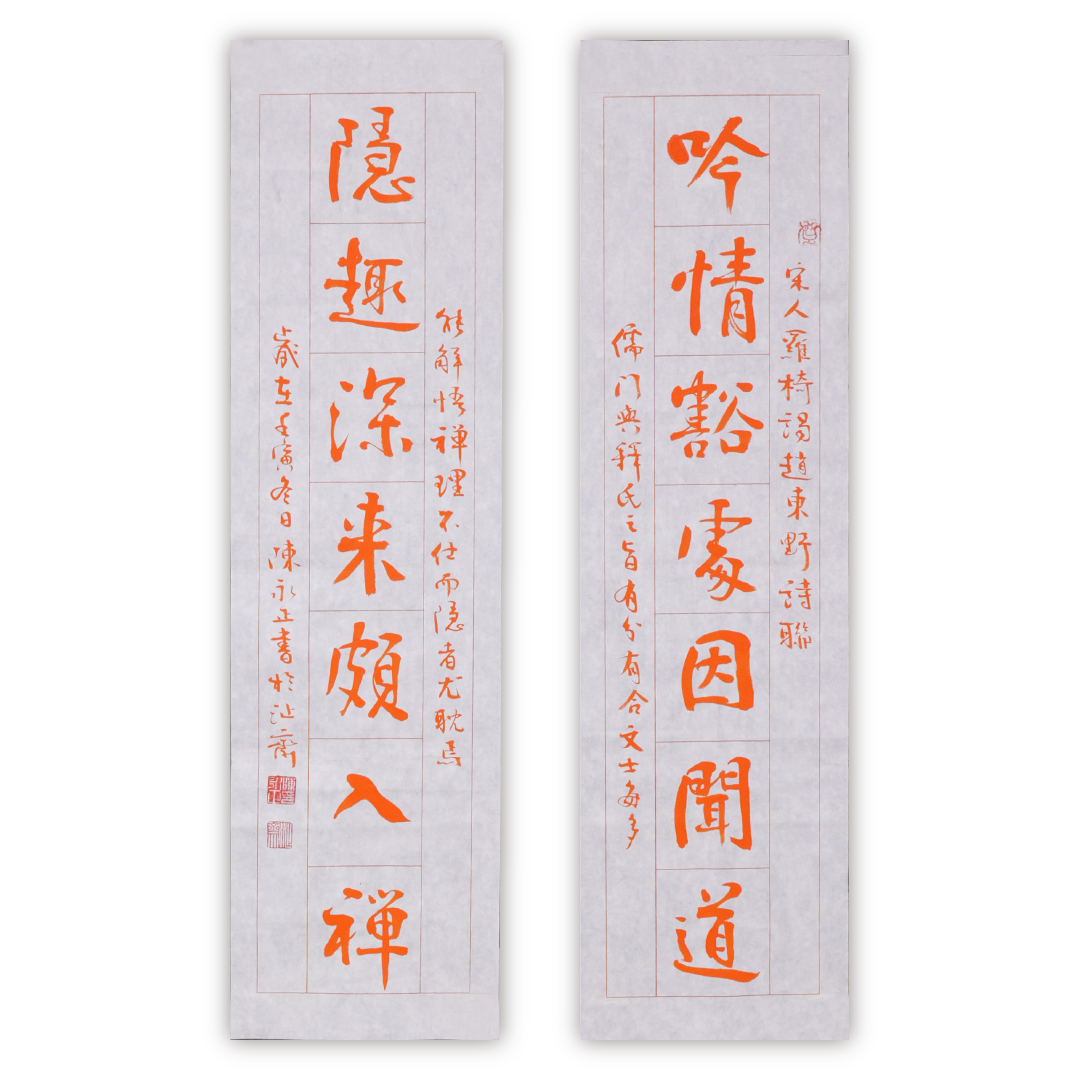 宋人羅椅謁趙東野詩聯
吟情豁處因聞道
儒门與釋氏之旨有分有合文士每多
能解悟禅理不仕而隐者尤耽焉
隱趣深来頗入禅
歲在壬寅冬日陳永正書於沚齋